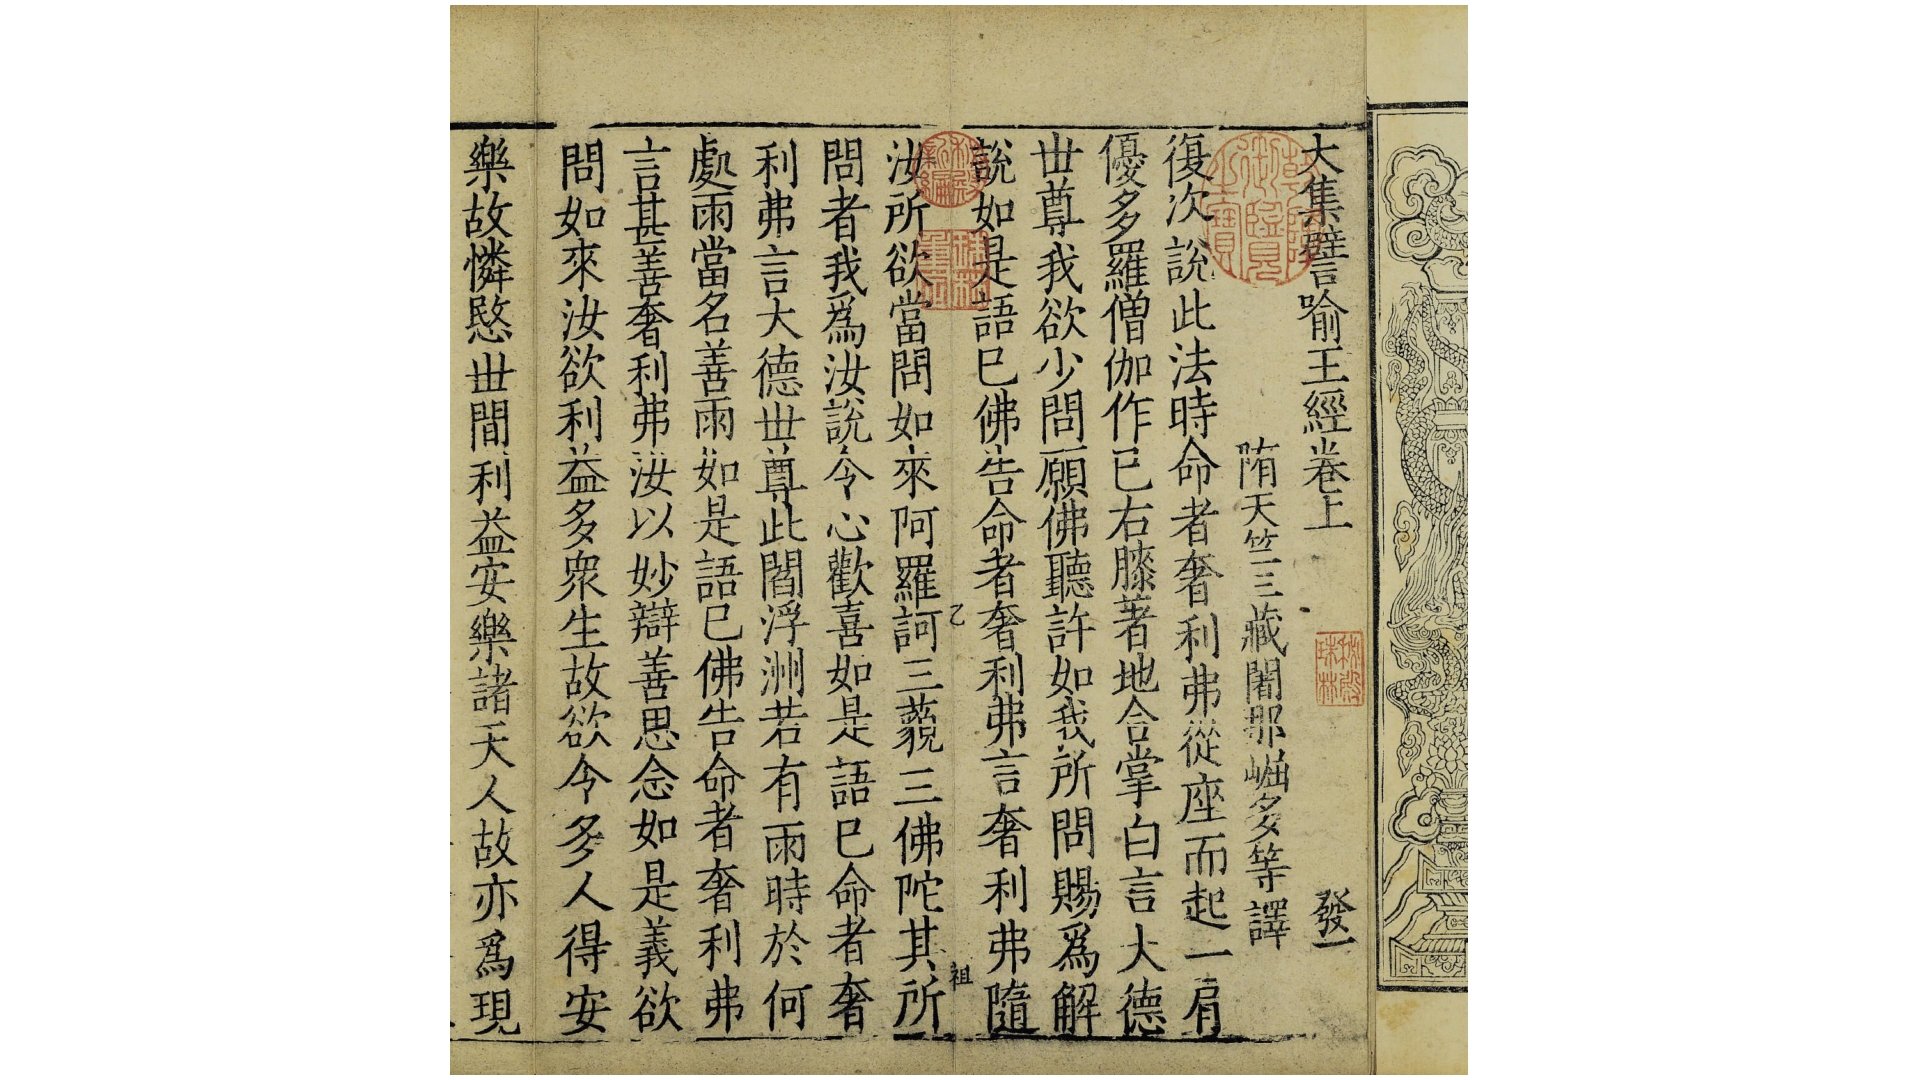 大集譬喻王經卷上 發一
隋天竺三藏闍那崛多等譯
復次說此法時命者奢利弗從座而起一肩
優多羅僧伽作已右膝著地合掌白言大德
世尊我欲少問願佛聽許如我所問賜爲解
說如是語已佛告命者奢利弗言奢利弗隨
乙 祖
汝所欲當問如來阿羅訶三藐三佛陀其所
問者我爲汝說令心歡喜如是語已命者奢
利弗言大德世尊此閻浮洲若有雨時於何
處雨當名善雨如是語已佛告命者奢利弗
言甚善奢利弗汝以妙辯善思念如是義欲
問如來汝欲利益多衆生故欲令多人得安
樂故憐愍世間利益安樂諸天人故亦爲現
乾隆御覽之寶
祕殿新編
祕殿珠林